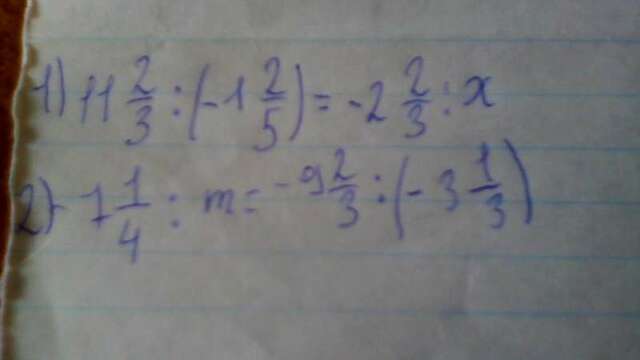 1) 11 2/3 : (-1 2/5) = -2 2/3 : x
2) -1 1/4 : m = -9 2/3 : (-3 1/3)